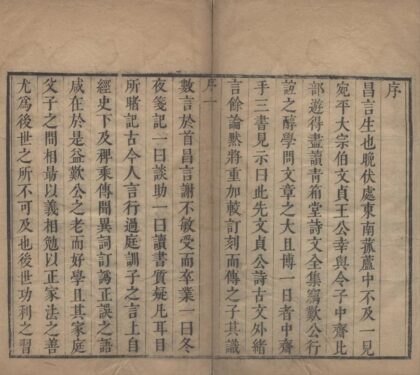 序
昌言生也晚伏處東南菰蘆中不及一見
宛平大宗伯文貞王公幸與令子中齋比
部遊得盡讀青箱堂詩文全集竊歎公行
誼之醇學問文章之大且博一日者中齋
手三書見示曰此先文貞公詩古文外緒
言餘論然將重加較訂刻而傳之子其識
序一
數言於首昌言謝不敏受而卒業一曰冬
夜箋記一曰談助一曰讀書質疑凡耳目
所睹記古今人言行過庭訓子之言上自
經史下及稗乘傳聞異詞訂譌正誤之語
咸在於是益歎公之老而好學且其家庭
父子之間相最以義相勉以正家法之善
尤為後世之所不可及也後世功利之習